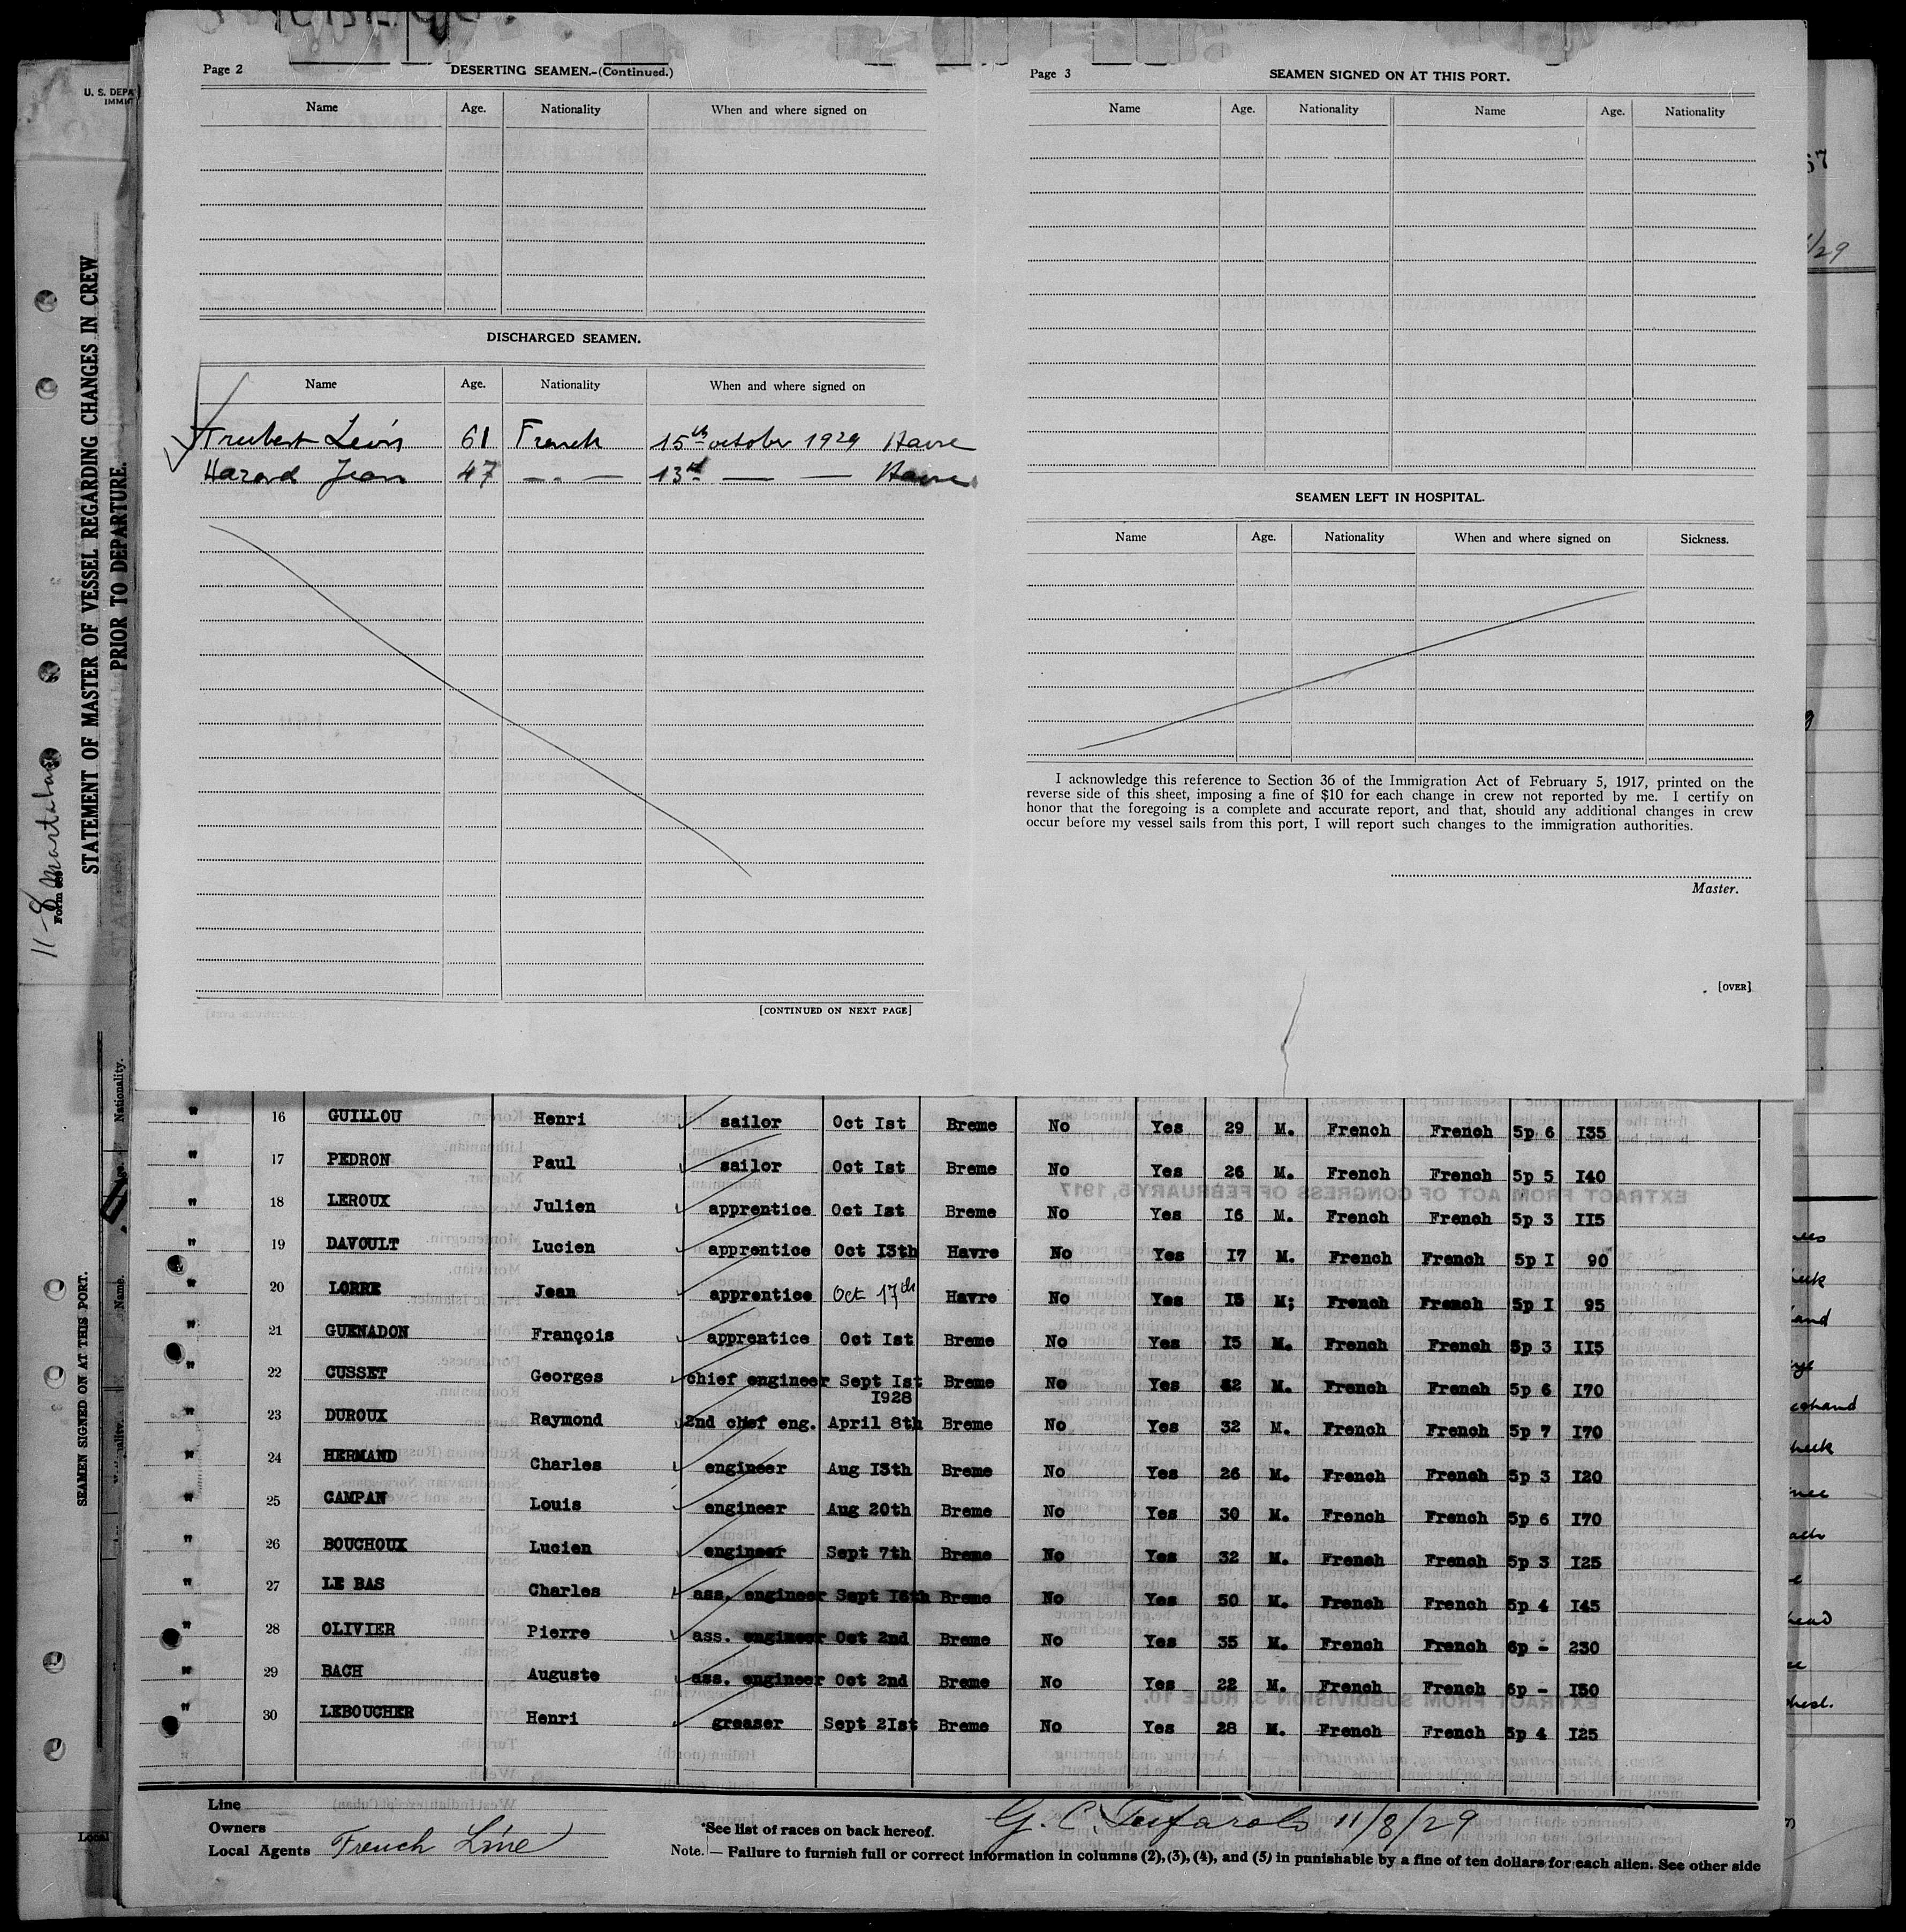 U. S. DEPA
IMMI
STATEMENT OF MASTER OF VESSEL REGARDING CHANGES IN CREW
PRIOR TO DEPARTURE.
SEAMEN SIGNED ON AT THIS PORT.
Name.
Age.
Nationality.
Page 2
DESERTING SEAMEN.-(Continued.)
Name Age. Nationality When and where signed on
DISCHARGED SEAMEN.
Name Age. Nationality When and where signed on
Trubert Léon 61 French 15th october 1929 Havre
Hazard Jean 47 — . — 13th — — Havre
[CONTINUED ON NEXT PAGE]
Page 3
SEAMEN SIGNED ON AT THIS PORT.
Name Age. Nationality Name Age. Nationality
SEAMEN LEFT IN HOSPITAL.
Name Age. Nationality When and where signed on Sickness.
I acknowledge this reference to Section 36 of the Immigration Act of February 5, 1917, printed on the
reverse side of this sheet, imposing a fine of $10 for each change in crew not reported by me. I certify on
honor that the foregoing is a complete and accurate report, and that, should any additional changes in crew
occur before my vessel sails from this port, I will report such changes to the immigration authorities.
Master.
[OVER]
" 16 GUILLOU Henri sailor Oct Ist Breme No Yes 29 M. French French 5p 6 I35
" 17 PEDRON Paul sailor Oct Ist Breme No Yes 26 M. French French 5p 5 I40
" 18 LEROUX Julien apprentice Oct Ist Breme No Yes I6 M. French French 5p 3 II5
" 19 DAVOULT Lucien apprentice Oct I3th Havre No Yes I7 M. French French 5p I 90
" 20 LORRE Jean apprentice Oct 17th Havre No Yes I5 M; French French 5p I 95
" 21 GUENADON François apprentice Oct Ist Breme No Yes I5 M. French French 5p 3 II5
" 22 CUSSET Georges chief engineer Sept Ist Breme No Yes M. French French 5p 6 I70
I928
" 23 DUROUX Raymond 2nd chief eng. April 8th Breme No Yes 32 M. French French 5p 7 I70
" 24 HERMAND Charles engineer Aug I3th Breme No Yes 26 M. French French 5p 3 I20
" 25 CAMPAN Louis engineer Aug 20th Breme No Yes 30 M. French French 5p 6 I70
" 26 BOUCHOUX Lucien engineer Sept 7th Breme No Yes 32 M. French French 5p 3 I25
" 27 LE BAS Charles ass. engineer Sept I6th Breme No Yes 50 M. French French 5p 4 I45
" 28 OLIVIER Pierre ass. engineer Oct 2nd Breme No Yes 35 M. French French 6p - 230
" 29 BACH Auguste ass. engineer Oct 2nd Breme No Yes 22 M. French French 6p - I50
" 30 LEBOUCHER Henri greaser Sept 2Ist Breme No Yes 28 M. French French 5p 4 I25
Line
Owners
Local Agents French Line
*See list of races on back hereof.
11/8/29
Note. — Failure to furnish full or correct information in columns (2),(3),(4), and (5) in punishable by a fine of ten dollars for each alien. See other side